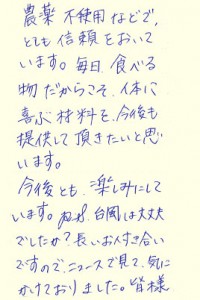 農薬不使用などで、
とても信頼をおいて
います。毎日、食べる
物だからこそ、人体に
喜ぶ材料を、今後も
提供して頂きたいと思
います。
今後とも、楽しみにして
います。台風は大丈夫
でしたか?長いお付き合い
ですので、ニュースで見て、気に
かけておりました。皆様